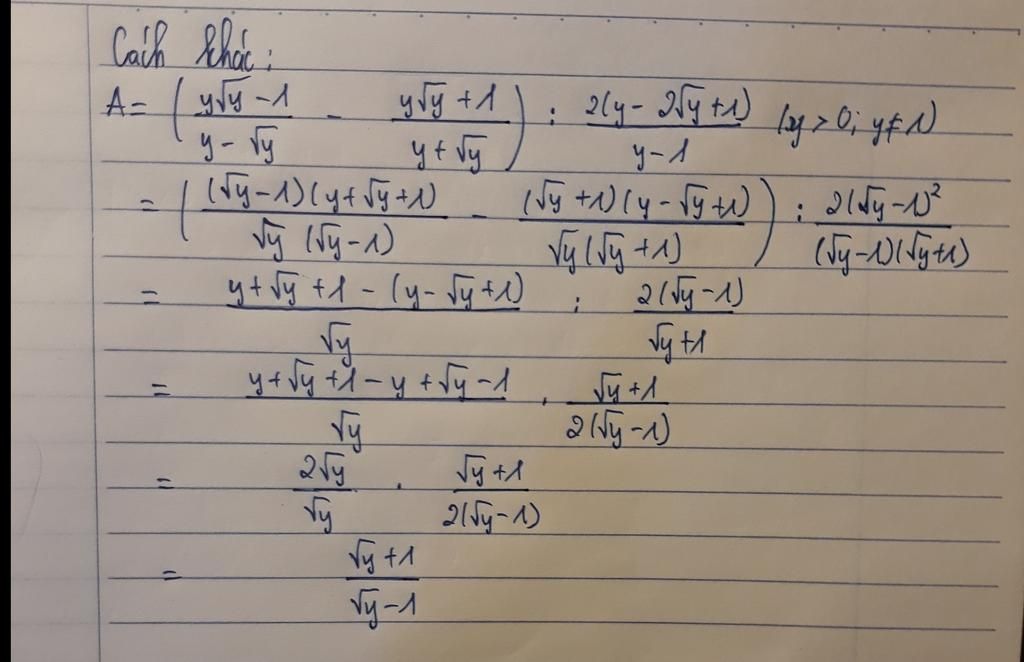 Cách khác:
A = ( (y√y - 1)/(y - √y) - (y√y + 1)/(y + √y) ) : 2(y - 2√y + 1)/(y - 1) (y > 0; y ≠ 1)
= ( (√y - 1)(y + √y + 1)/(√y (√y - 1)) - (√y + 1)(y - √y + 1)/(√y (√y + 1)) ) : 2(√y - 1)²/((√y - 1)(√y + 1))
= (y + √y + 1 - (y - √y + 1))/√y : 2(√y - 1)/(√y + 1)
= (y + √y + 1 - y + √y - 1)/√y . (√y + 1)/(2(√y - 1))
= 2√y/√y . (√y + 1)/(2(√y - 1))
= (√y + 1)/(√y - 1)